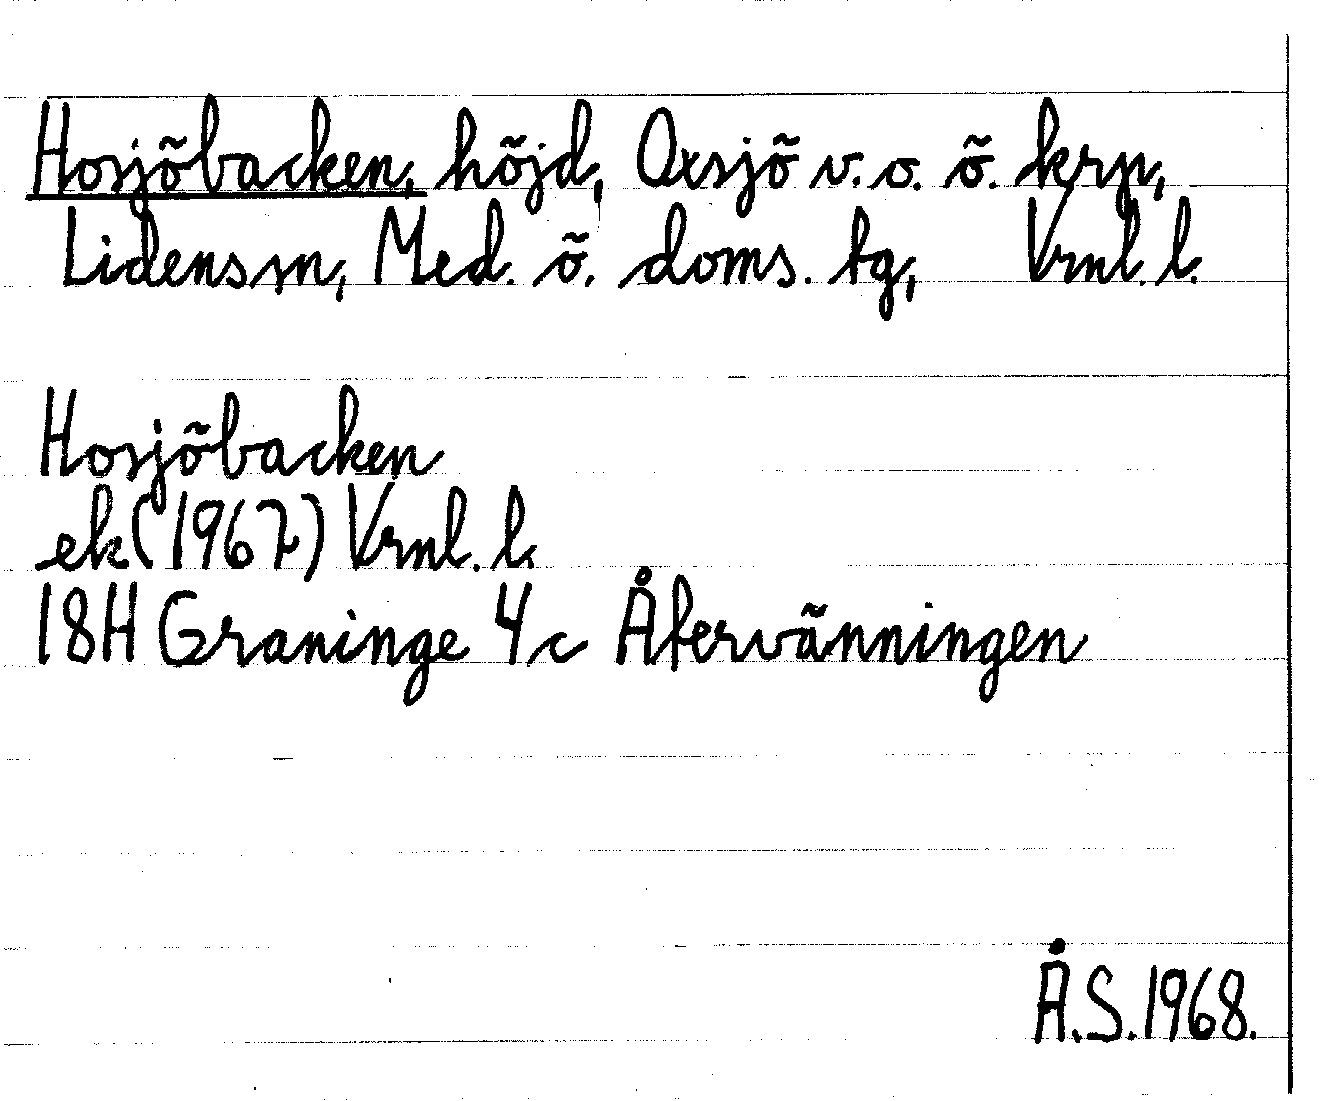 Hosjöbacken, höjd, Oxsjö v. o. ö. krn,
Lidens sn, Med. ö. doms. tg, Vrnl. l.
Hosjöbacken
ek (1967) Vrnl. l.
18H Graninge 4c Återvänningen
Å.S.1968.